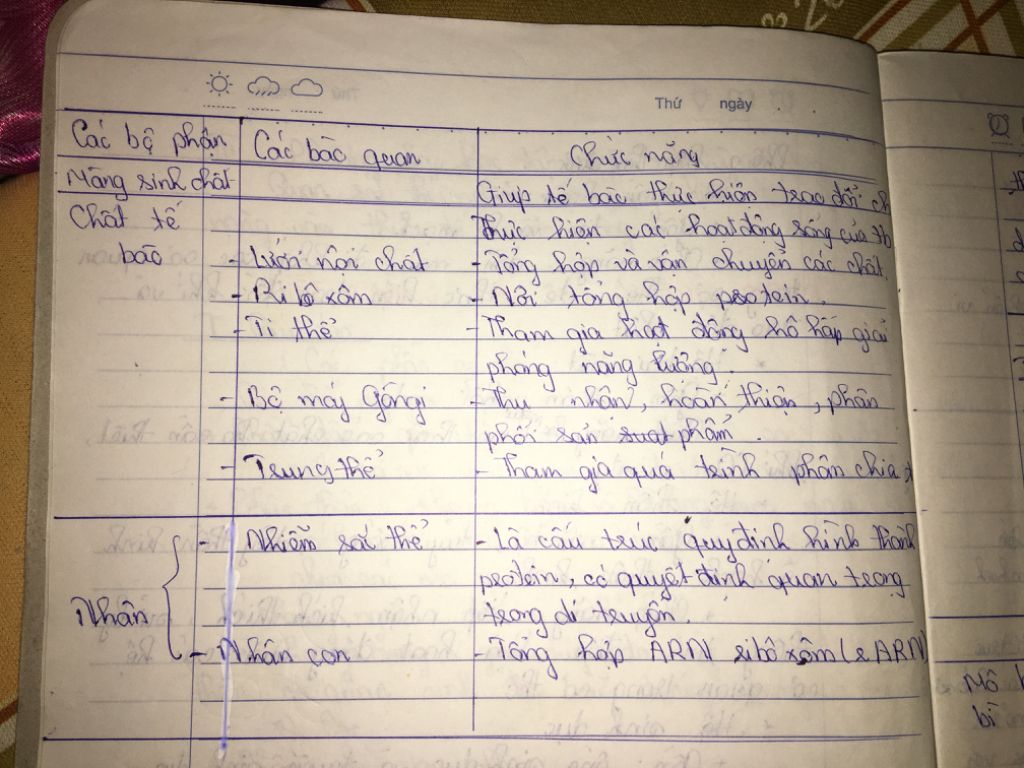 Thứ ngày
Các bộ phận Các bào quan Chức năng
Màng sinh chất Giúp tế bào thực hiện trao đổi ch
Chất tế Thực hiện các hoạt động sống của tb
bào - Lưới nội chất - Tổng hợp và vận chuyển các chất.
- Ribôxôm - Nơi tổng hợp protein.
- Ti thể - Tham gia hoạt động hô hấp giải
phóng năng lượng.
- Bộ máy Gôngi - Thu nhận, hoàn thiện, phân
phối sản suất phẩm.
- Trung thể - Tham gia quá trình phân chia t
- Nhiễm sắc thể - Là cấu trúc quy định hình thành
protein, có quyết định quan trọng
Nhân trong di truyền.
- Nhân con - Tổng hợp ARN ribôxôm (rARN)
Mô b
bì